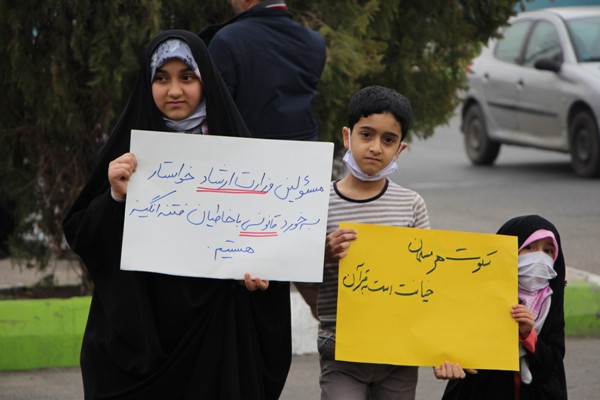 مسئولین وزارت ارشاد خواستار
برخورد قانونی با خاطیان فتنه انگیز
هستیم.
سکوت هر مسلمان
خیانت است به قرآن